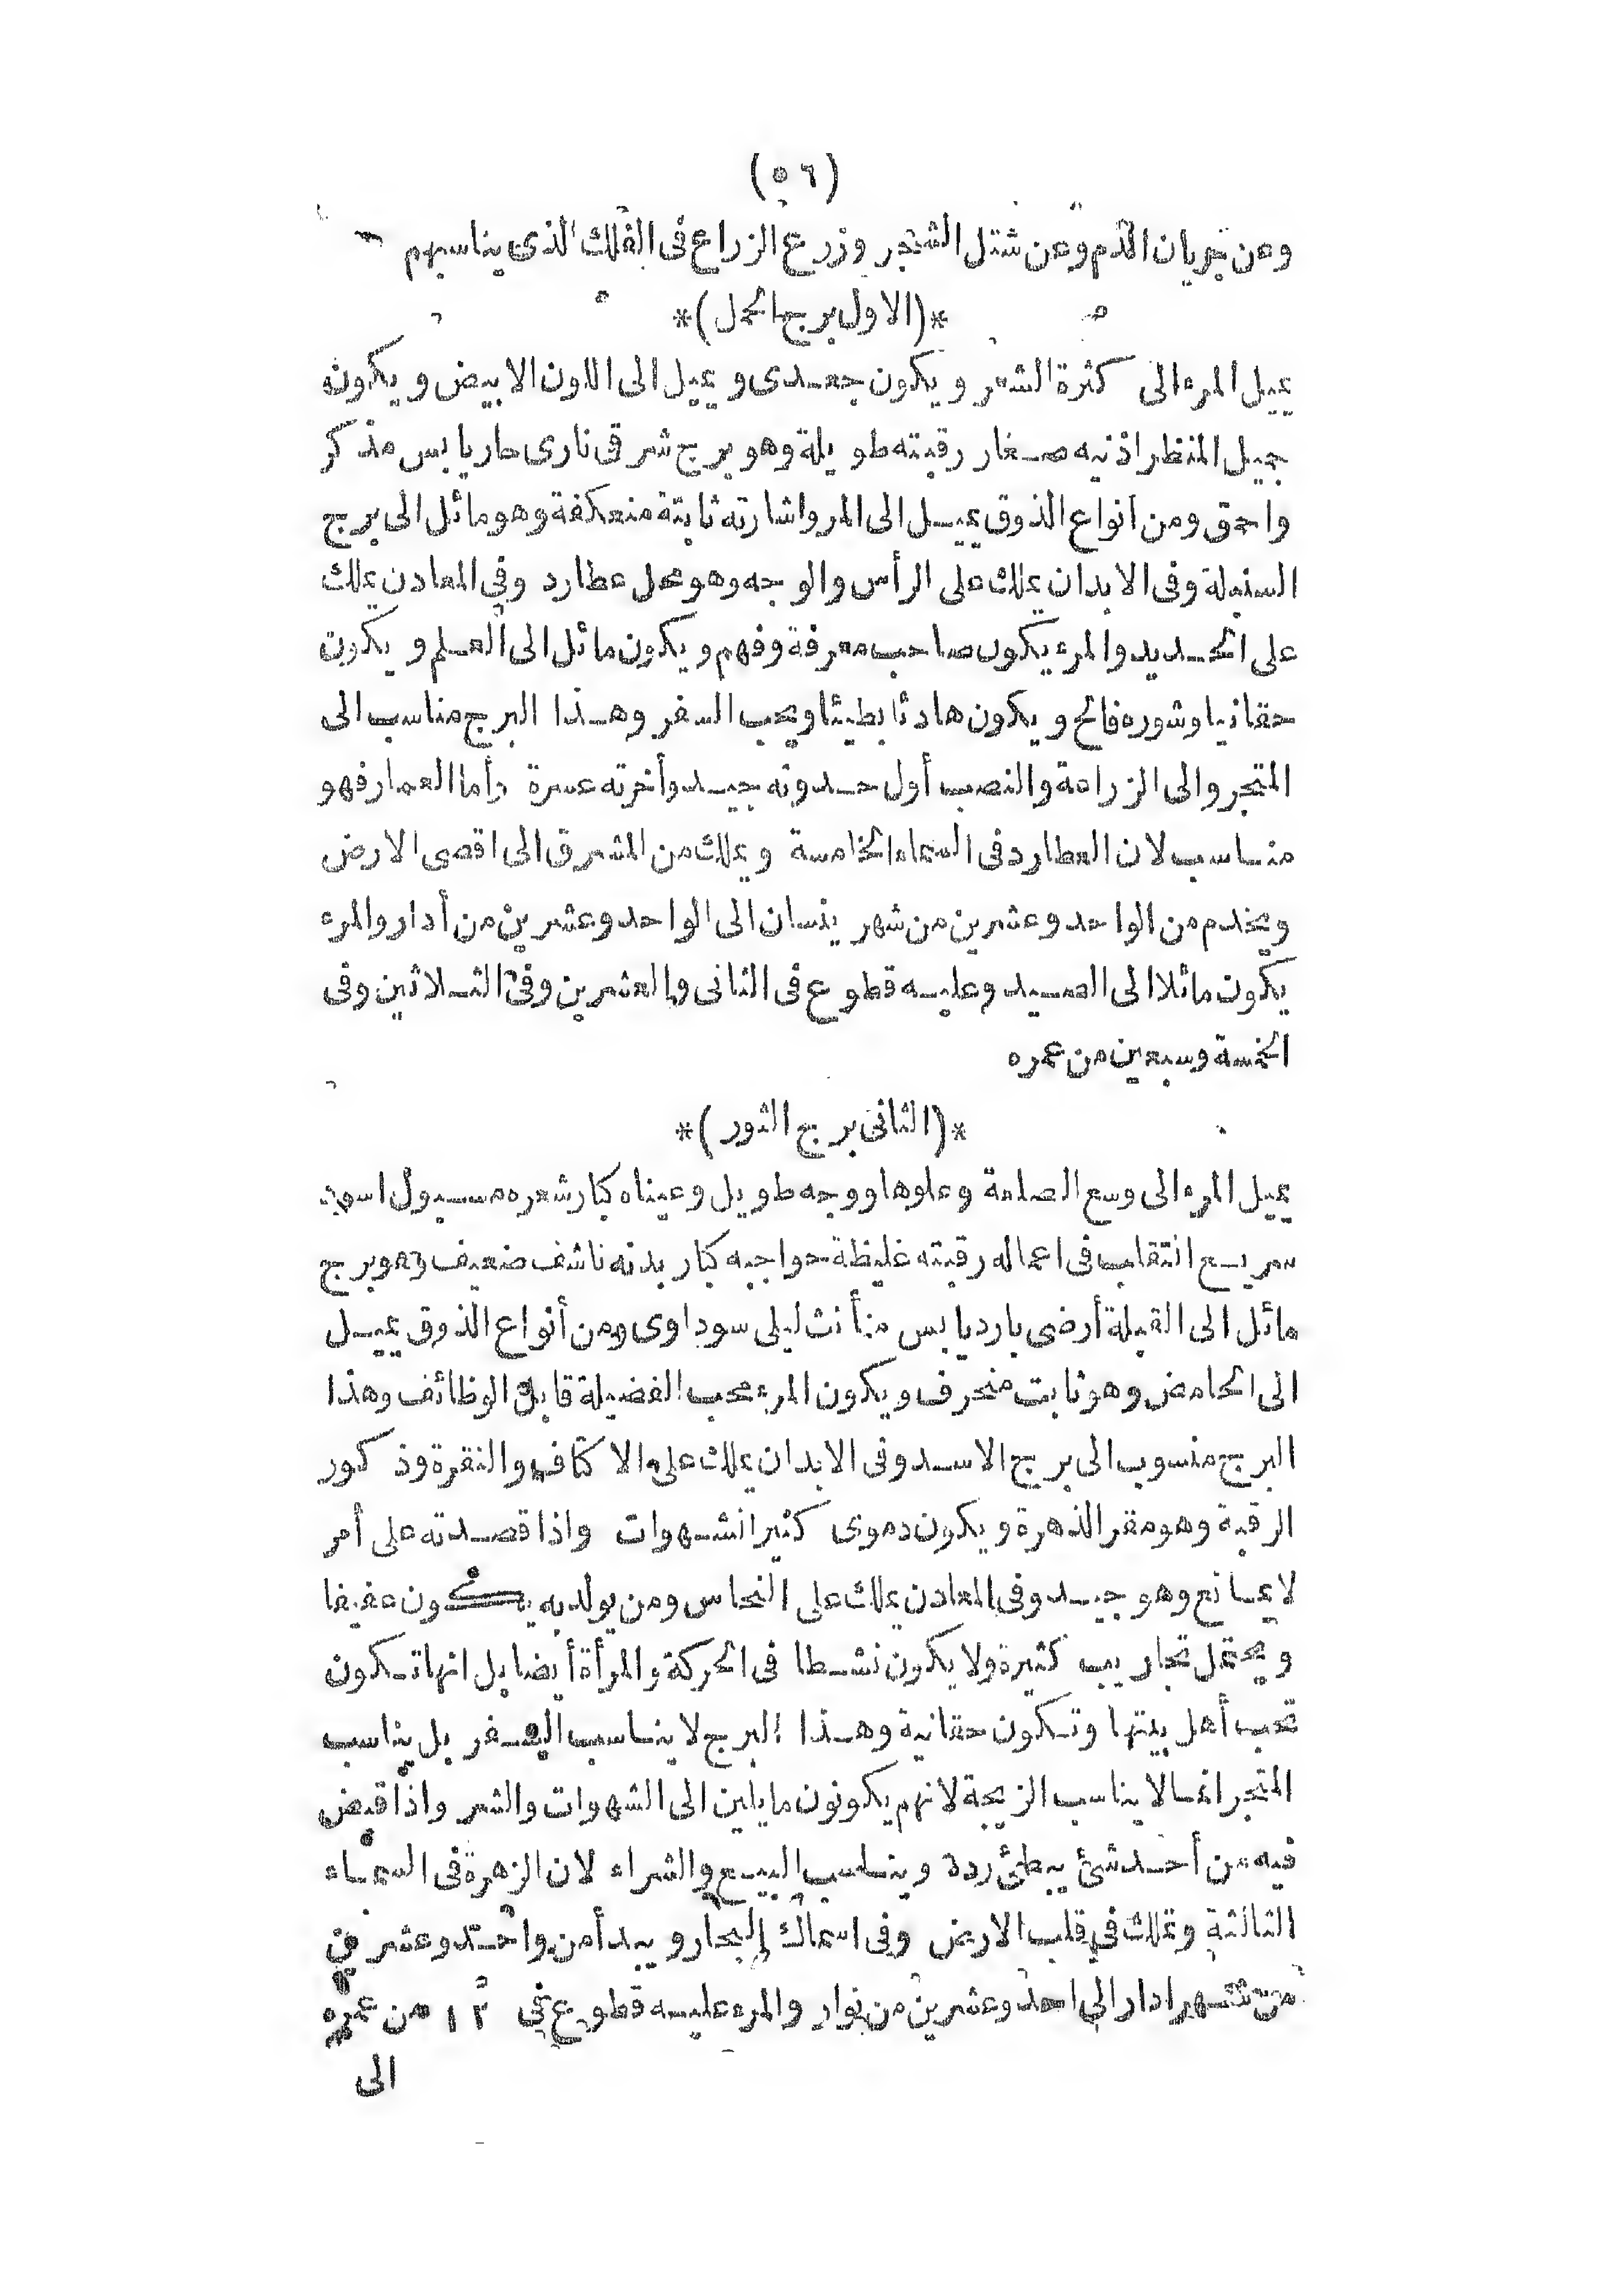 (٥٦)
وعن جريان الدم وعن شتل الشجر وزرع الزراع فى الفلك الذى يناسبهم
*(الاول برج الحمل)*
يميل المرء الى كثرة الشعر ويكون جعدى ويميل الى اللون الابيض ويكون
جميل المنظر اذنيه صغار رقبته طويلة وهو برج شرقى نارى حار يابس مذكر
واحمق ومن انواع الذوق يميل الى المر واشارته ثابتة منعكفة وهو مائل الى برج
السنبلة وفى الابدان يملك على الرأس والوجه وهو محل عطارد وفى المعادن يملك
على الحديد والمرء يكون صاحب معرفة وفهم ويكون مائل الى العلم ويكون
حقانيا وشوره فالح ويكون هادئا بطيئا ويحب السفر وهذا البرج مناسب الى
المتجر والى الزراعة والنصب أول حدوثه جيد وأخرته عسرة وأما العمار فهو
مناسب لان العطارد فى السماء الخامسة ويملك من المشرق الى اقصى الارض
ويخدم من الواحد وعشرين من شهر ينسان الى الواحد وعشرين من أدار والمرء
يكون مائلا الى الصيد وعليه قطوع فى الثانى والعشرين وفى الثلاثين وفى
الخمسة وسبعين من عمره
*(الثانى برج الثور)*
يميل المرء الى وسع الصلعة وعلوها ووجه طويل وعيناه كبار شعره مسبول اسود
سريع انتقاب فى اعماله رقبته غليظة حواجبه كبار بدنه ناشف ضعيف وهو برج
مائل الى القبلة أرضى بارد يابس منأنث ليلى سوداوى ومن أنواع الذوق يميل
الى الحامض وهو ثابت منحرف ويكون المرء محب الفضيلة قابل الوظائف وهذا
البرج منسوب الى برج الاسد وفى الابدان يملك على الاكتاف والنقرة وذكور
الرقبة وهو مقر الذهرة ويكون دموى كثير انشهوات واذا قصدته على أمر
لا يمانع وهو جيد وفى المعادن يملك على النحاس ومن يولد به يكون عفيفا
ويحتمل تجاريب كثيرة ولا يكون نشطا فى الحركة والمرأة أيضا بل انها تكون
تحب أهل بيتها وتكون حقانية وهذا البرج لا يناسب السفر بل يناسب
المتجر انما لا يناسب الزيجة لانهم يكونون مايلين الى الشهوات والشر واذا قبض
فيه من أحد شئ يبطئ رده ويناسب البيع والشراء لان الزهرة فى السماء
الثالثة وتملك فى قلب الارض وفى اسماك البحار ويبدأ من واحد وعشرين
من شهر ادار الى احد وعشرين من نوار والمرء عليه قطوع فى ١٢ من عمره
الى